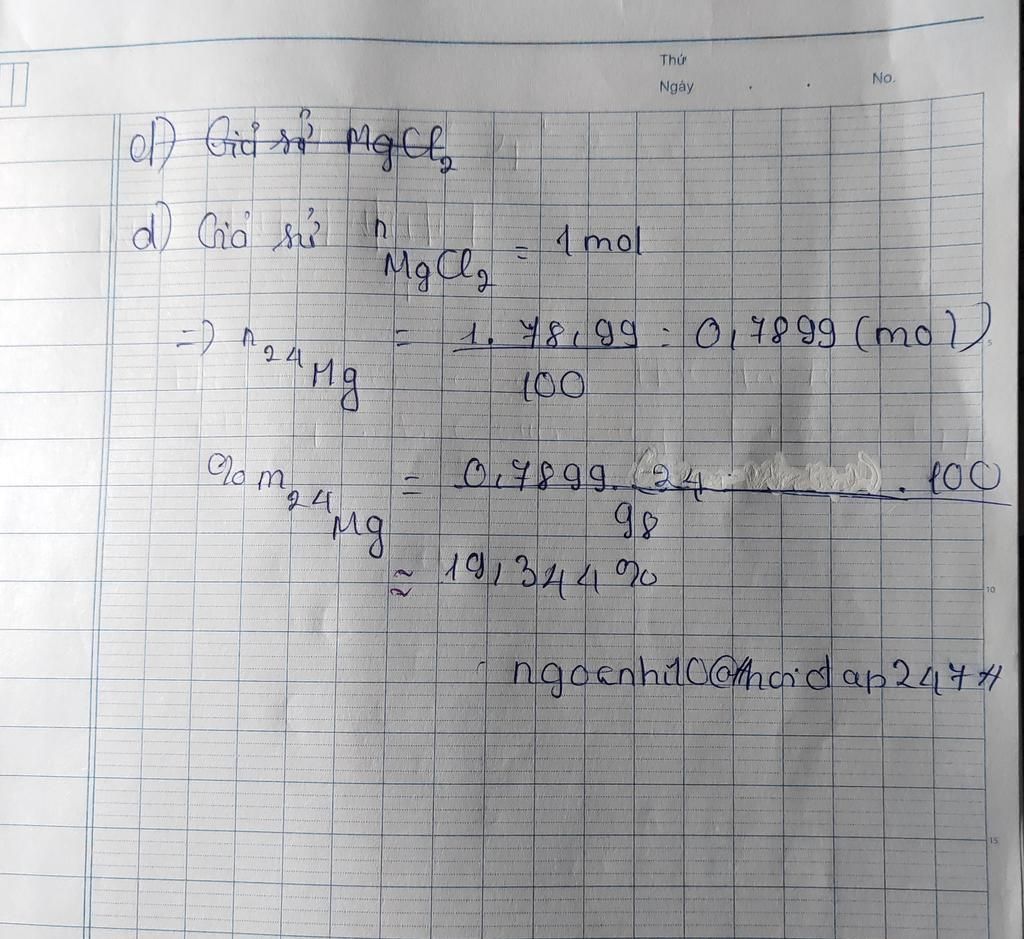 Thứ
Ngày . . No.
d) Giả sử MgCl2
d) Giả sử nMgCl2 = 1 mol
=) n24Mg = 1. 78,99 = 0,7899 (mol)
100
%m24Mg = 0,7899. (24 ) . 100
98
≈ 19,344%
ngoenhi10@hoidap247#
5
10
15